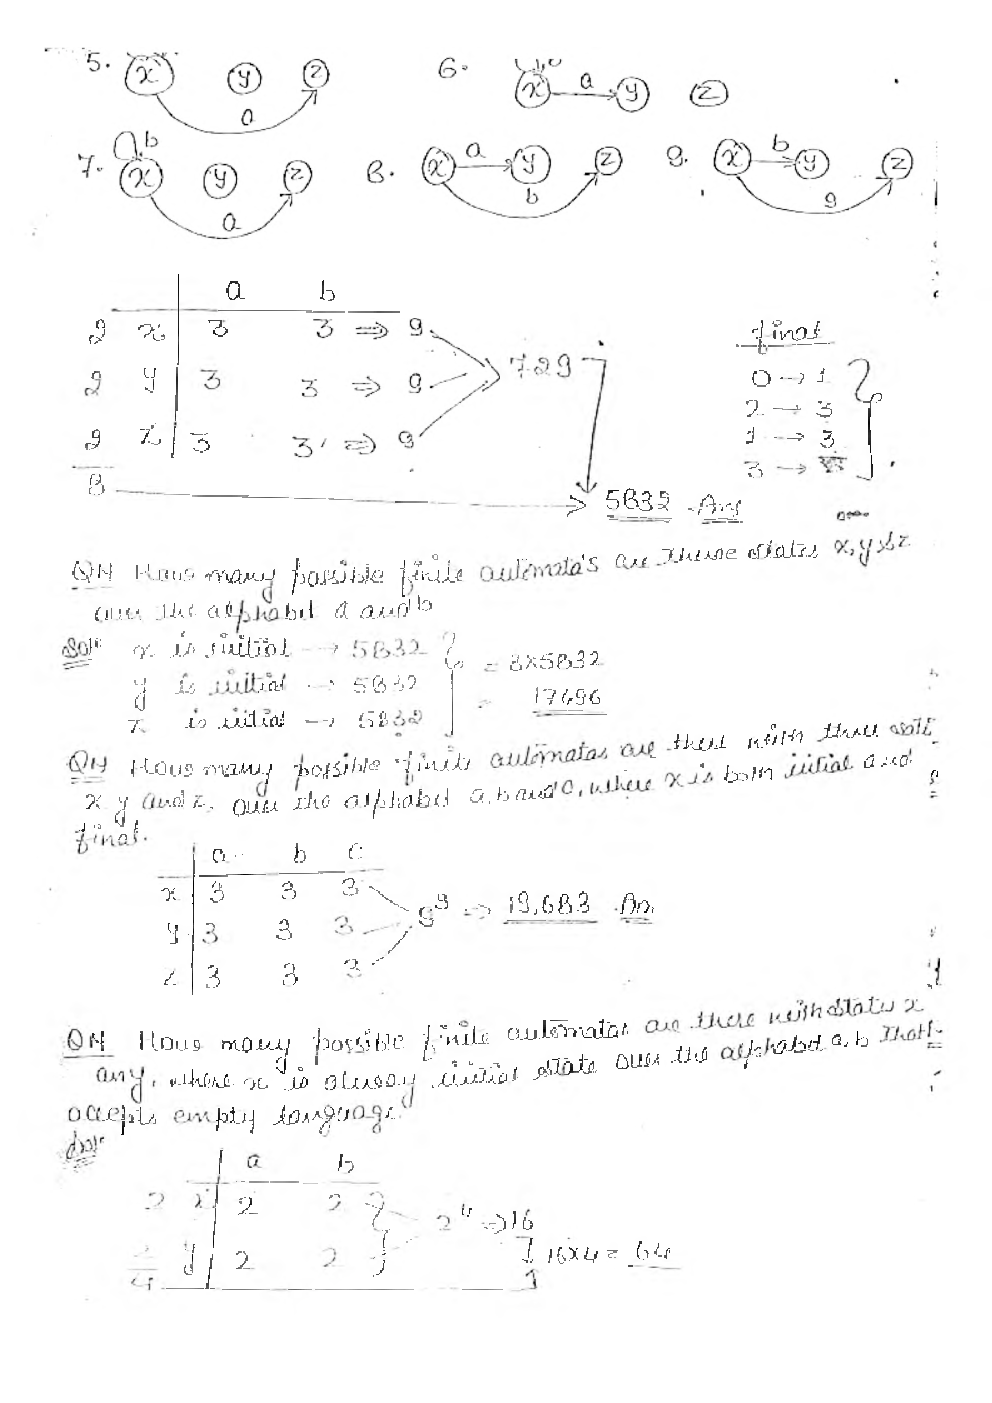 5. x y z a
6. x a y z
7. a,b x y z a
8. x a y z b
9. x b y z a
a b
2 x 3 3 ⇒ 9
2 y 3 3 ⇒ 9
2 z 3 3 ⇒ 9
8
729
5832 Ans
final
0 → 1
2 → 3
1 → 3
3 →
QN How many possible finite automata's are these states x, y & z
over the alphabet a and b
Solⁿ x is initial → 5832
y is initial → 5832
z is initial → 5832
= 3x5832
= 17496
QN How many possible finite automatas are there with three state
x y and z, over the alphabet a, b and c, where x is both initial and
final.
a b c
x 3 3 3
y 3 3 3
z 3 3 3
⇒ 19,683 Ans
QN How many possible finite automatas are there with states x
any, where x is always initial state over the alphabet a, b that
accepts empty language.
Solⁿ
a b
2 x 2 2
2 y 2 2
4
2⁴ ⇒ 16
16x4 = 64